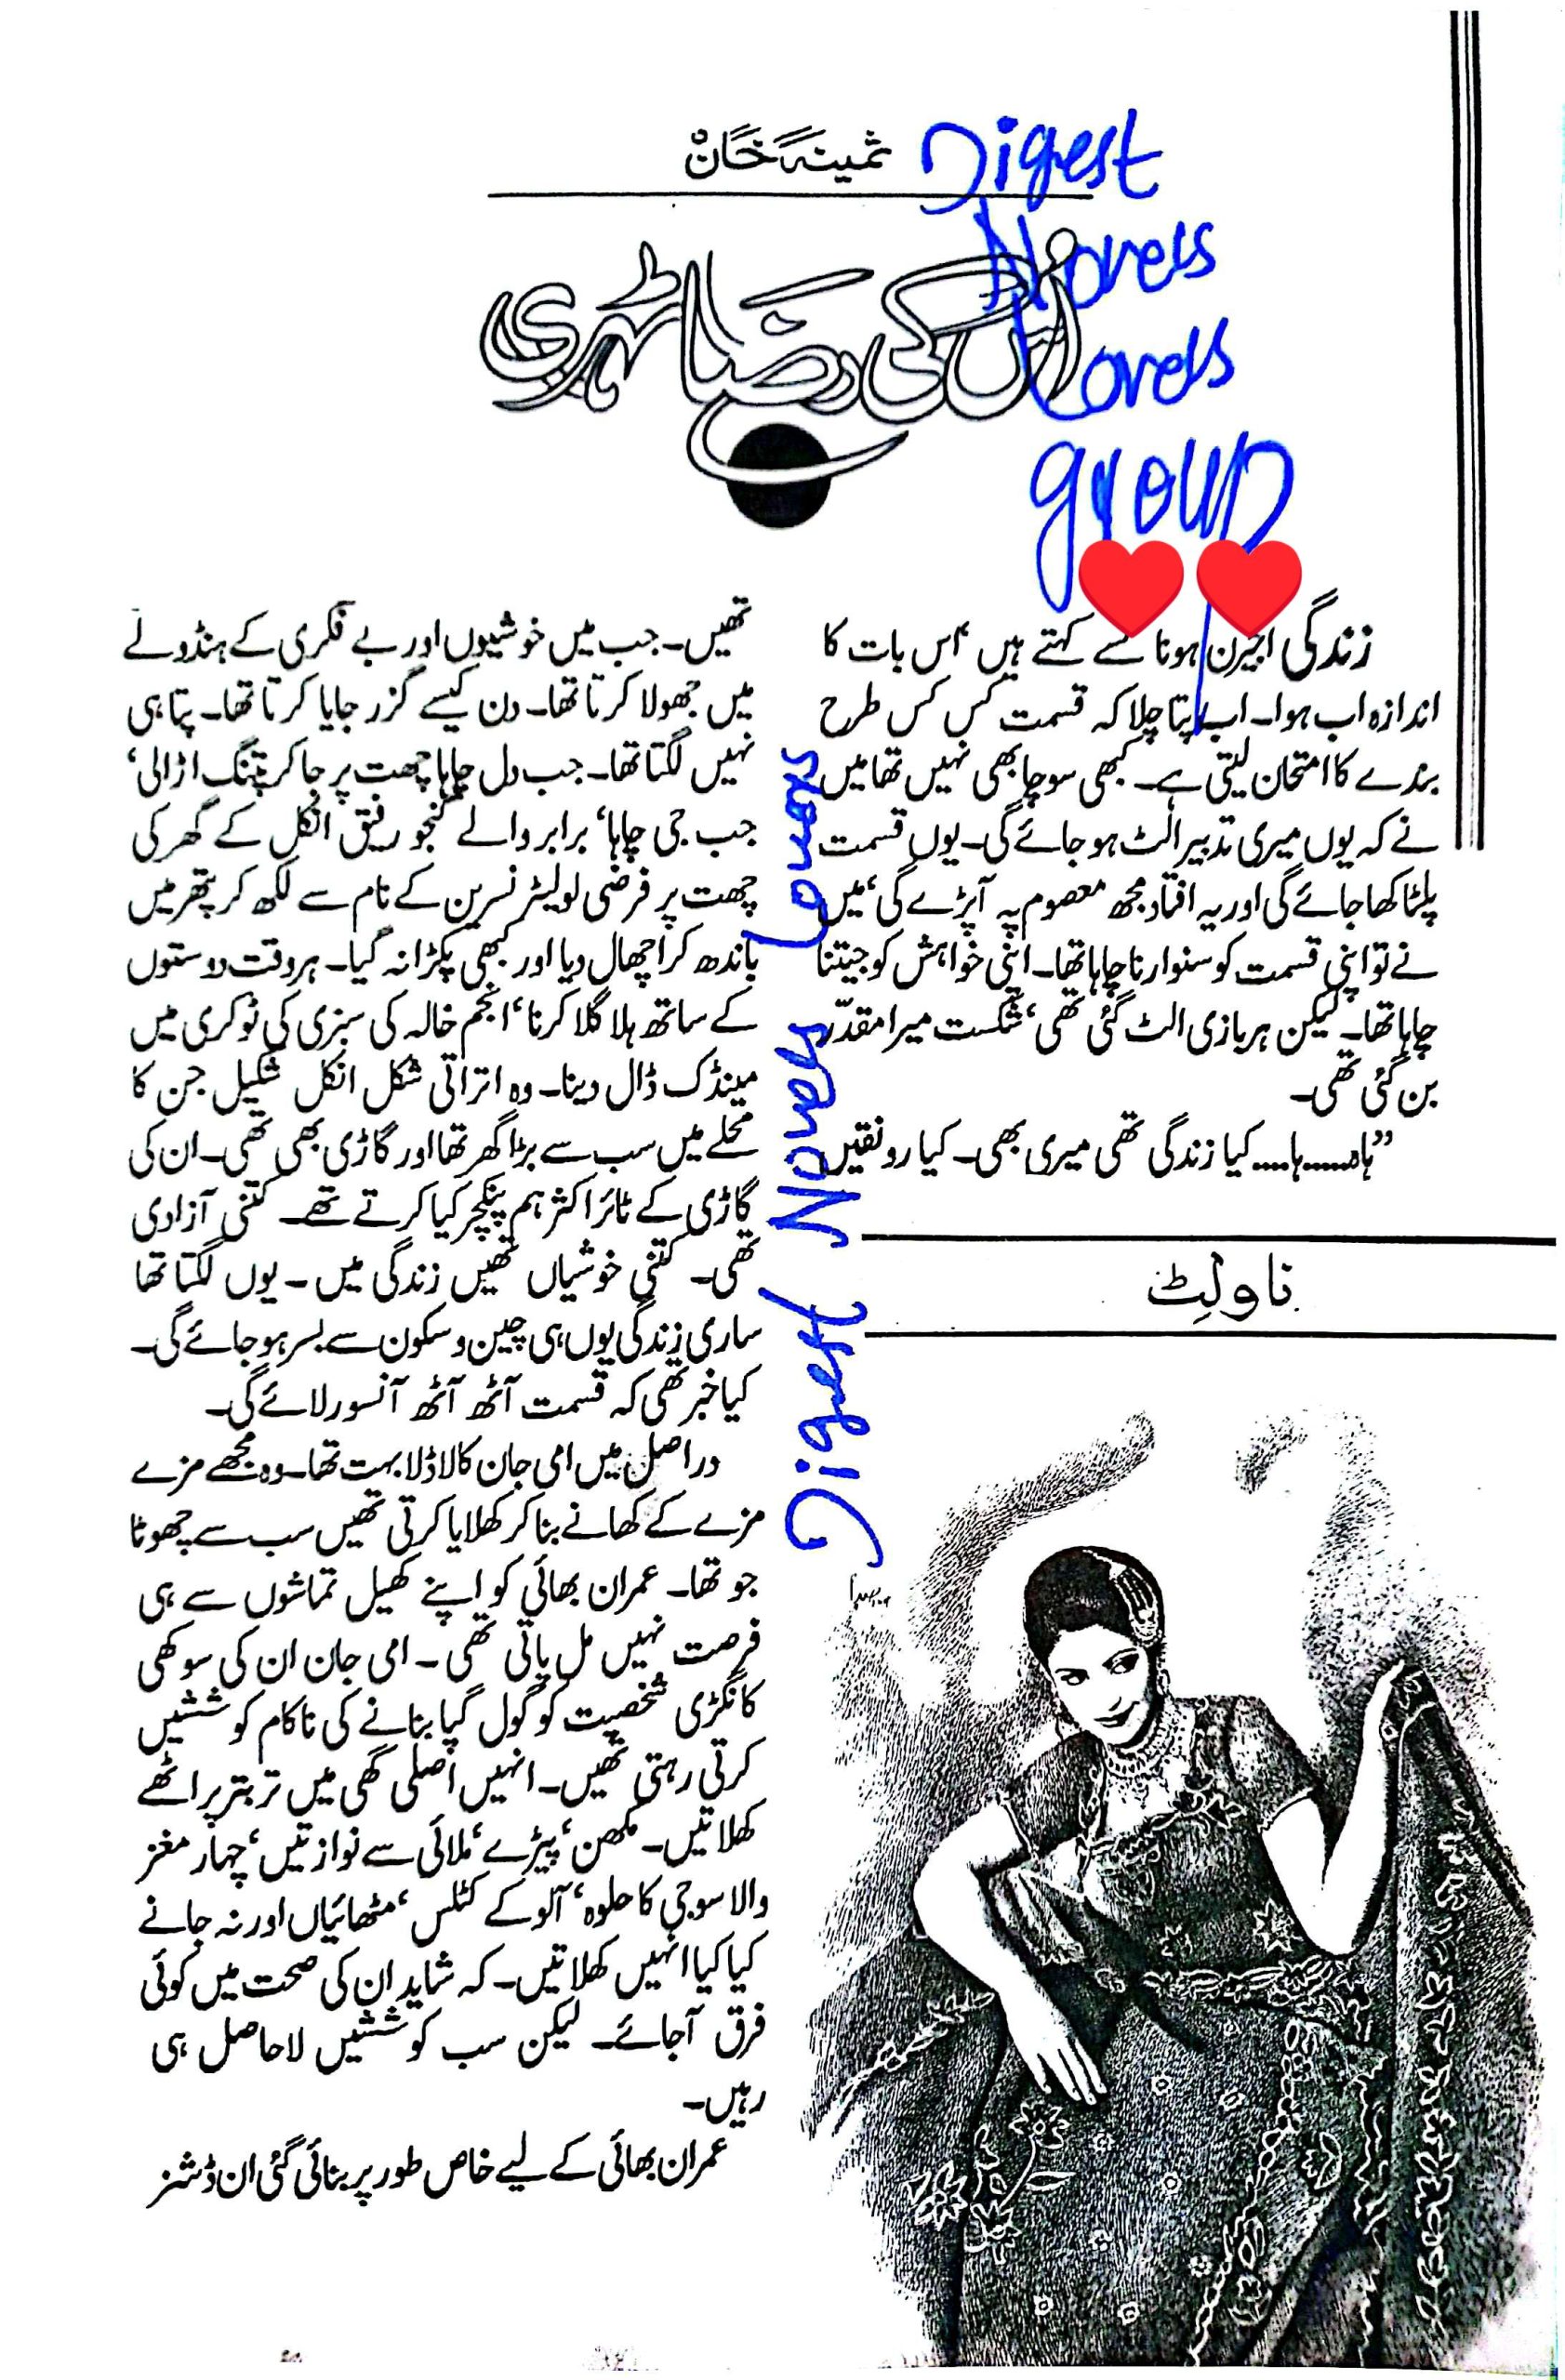 ثمینہ خان
اُس کی رضا ٹھہری
Digest
Novels
Lovers
group
زندگی اجیرن ہونا کسے کہتے ہیں، اس بات کا
اندازہ اب ہوا۔ اب پتا چلا کہ قسمت کس کس طرح
بندے کا امتحان لیتی ہے۔ کبھی سوچا بھی نہیں تھا میں
نے کہ یوں میری تدبیر الٹ ہو جائے گی۔ یوں قسمت
پلٹا کھا جائے گی اور یہ افتاد مجھ معصوم پہ آپڑے گی، میں
نے تو اپنی قسمت کو سنوارنا چاہا تھا۔ اپنی خواہش کو جیتنا
چاہا تھا۔ لیکن ہر بازی الٹ گئی تھی، شکست میرا مقدّر
بن گئی تھی۔
”ہاہ......ہا.... کیا زندگی تھی میری بھی۔ کیا رونقیں
ناولٹ
Digest Novels Lovers
تھیں۔ جب میں خوشیوں اور بے فکری کے ہنڈولے
میں جھولا کرتا تھا۔ دن کیسے گزر جایا کرتا تھا۔ پتا ہی
نہیں لگتا تھا۔ جب دل چاہا چھت پر جا کر پتنگ اڑالی،
جب جی چاہا، برابر والے گنجو رفیق انکل کے گھر کی
چھت پر فرضی لو لیٹر نسرین کے نام سے لکھ کر پتھر میں
باندھ کر اچھال دیا اور کبھی پکڑا نہ گیا۔ ہر وقت دوستوں
کے ساتھ ہلا گلا کرنا، انجم خالہ کی سبزی کی ٹوکری میں
مینڈک ڈال دینا۔ وہ اتراتی شکل انکل شکیل جن کا
محلے میں سب سے بڑا گھر تھا اور گاڑی بھی تھی۔ ان کی
گاڑی کے ٹائر اکثر ہم پنکچر کیا کرتے تھے۔ کتنی آزادی
تھی۔ کتنی خوشیاں تھیں زندگی میں۔ یوں لگتا تھا
ساری زندگی یوں ہی چین و سکون سے بسر ہو جائے گی۔
کیا خبر تھی کہ قسمت آٹھ آٹھ آنسو رلائے گی۔
دراصل میں امی جان کا لاڈلا بہت تھا۔ وہ مجھے مزے
مزے کے کھانے بنا کر کھلایا کرتی تھیں سب سے چھوٹا
جو تھا۔ عمران بھائی کو اپنے کھیل تماشوں سے ہی
فرصت نہیں مل پاتی تھی۔ امی جان ان کی سوکھی
کانگڑی شخصیت کو گول گپا بنانے کی ناکام کوششیں
کرتی رہتی تھیں۔ انہیں اصلی گھی میں تر بتر پراٹھے
کھلاتیں۔ مکھن، پیڑے، ملائی سے نوازتیں، چہار مغز
والا سوجی کا حلوہ، آلو کے کٹلس، مٹھائیاں اور نہ جانے
کیا کیا انہیں کھلاتیں۔ کہ شاید ان کی صحت میں کوئی
فرق آجائے۔ لیکن سب کوششیں لاحاصل ہی
رہیں۔
عمران بھائی کے لیے خاص طور پر بنائی گئی ان ڈشنز